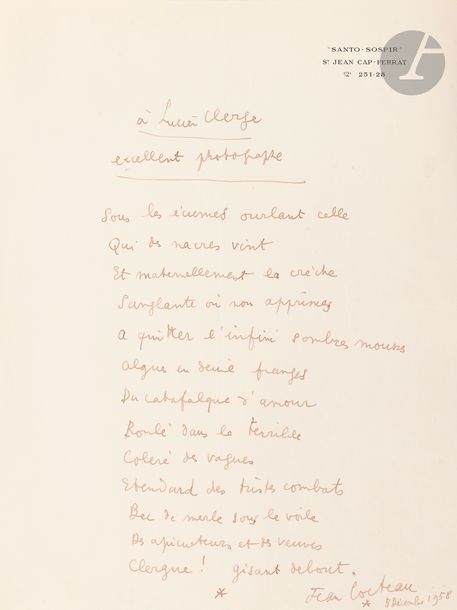 "SANTO-SOSPIR"
St JEAN CAP-FERRAT
251-28
à Lucien Clerge
excellent photographe
Sous les écumes ourlant celle
Qui des nacres vint
Et maternellement la crèche
Sanglante où non apprises
a quitter l'infini sombres mousses
algues en deuil franges
Du catafalque d'amour
Roulé dans la terrible
Colère des vagues
Etendard des tristes combats
Bec de merle sous le voile
Des apiculteurs et des veuves
Clergue ! gisant debout.
Jean Cocteau
* * 5 Décembre 1958